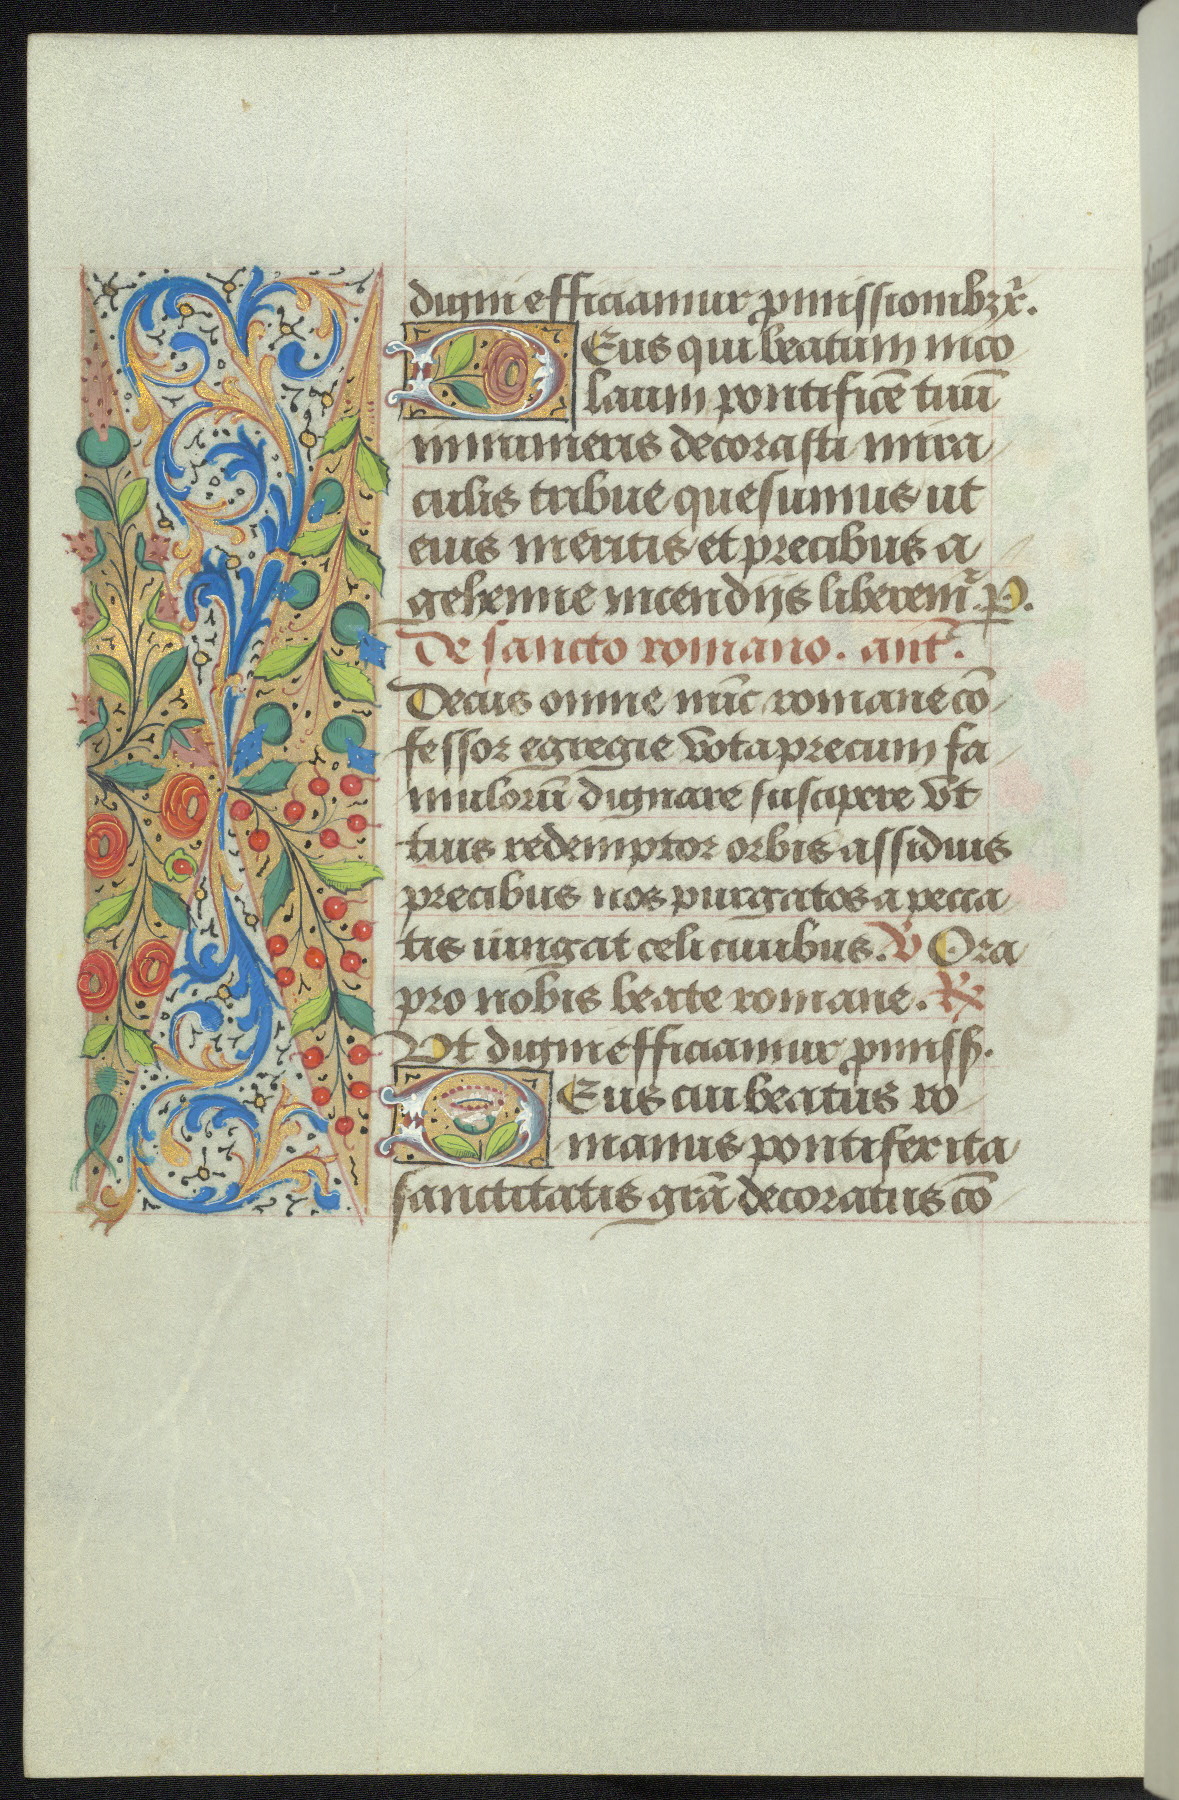 digni efficiamur ꝓmissionibꝫ xp̄i.
Deus qui beatum nico
laum pontificē tuū
innumeris decorasti mira
culis tribue quesumus ut
eius meritis et precibus a
gehenne incendijs liberem̄. P.
De sancto romano. ant̄.
Decus omne nūc romane cō
fessor egregie vota precum fa
mulorū dignare suscipere vt
tuis redemptor orbis assiduis
precibus nos purgatos a pecca
tis iungat celi ciuibus. ℣ Ora
pro nobis beate romane. ℟
Vt digni efficiamur ꝓmiss.
Deus cui beatus ro
manus pontifex ita
sanctitatis grā decoratus cō